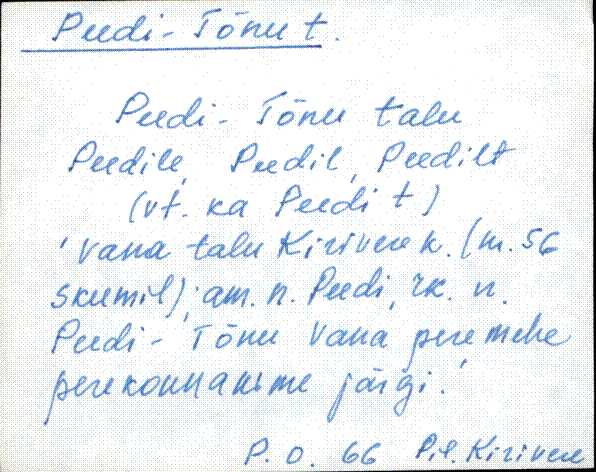 Peedi-Tõnu t.
Peedi-Tõnu talu
Peedile, Peedil, Peedilt
(vt. ka Peedi t)
'vana talu Kirivere k. (m. 56
skeemil); am. n. Peedi, rk. n.
Peedi-Tõnu vana peremehe
perekonnanime järgi.'
P. O. 66 Pil. Kirivere